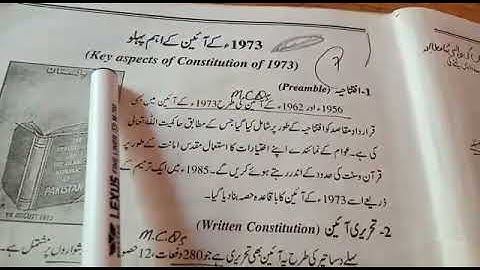 1973ء کے آئین کے اہم پہلو
(Key aspects of Constitution of 1973)
1- افتتاحیہ (Preamble)
M.CQs
1956ء اور 1962ء کے آئین کی طرح 1973ء کے آئین میں بھی
قرارداد مقاصد کو افتتاحیہ کے طور پر شامل کیا گیا جس کے مطابق حاکمیت اللہ تعالیٰ
کی ہے۔ عوام کے نمائندے اپنے اختیارات کا استعمال مقدس امانت کے طور پر
قرآن و سنت کی حدود کے اندر رہتے ہوئے کریں گے۔ 1985ء میں ایک ترمیم کے
ذریعے اسے 1973ء کے آئین کا باقاعدہ حصہ بنا دیا گیا۔
2- تحریری آئین (Written Constitution)
M.CQs
پہلے دساتیر کی طرح یہ آئین بھی تحریری ہے جو 280 دفعات، 12
شواروں پر مشتمل ہے۔
PAKISTAN
LEXUS